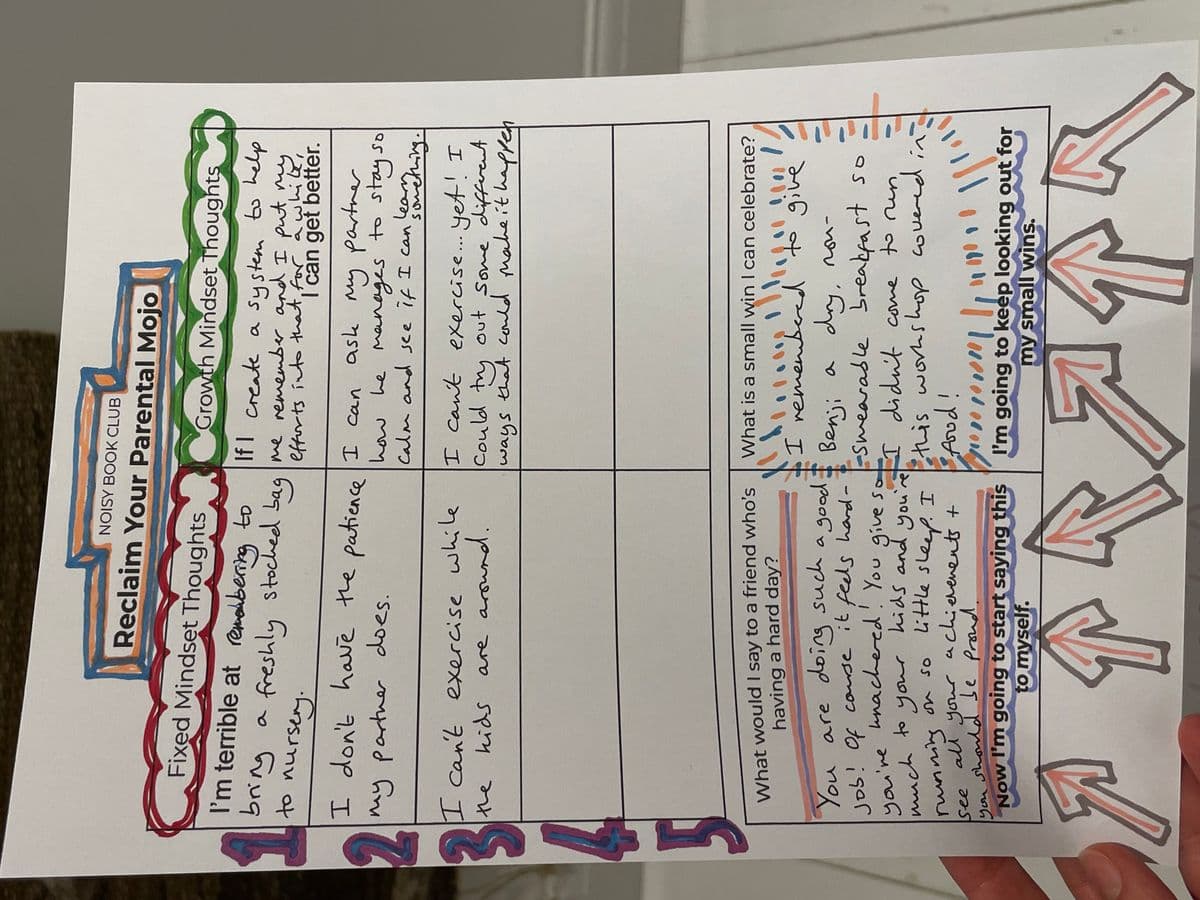 NOISY BOOK CLUB
Reclaim Your Parental Mojo
Fixed Mindset Thoughts
Growth Mindset Thoughts
1
I'm terrible at remembering to
bring a freshly stocked bag
to nursery.
If I create a system to help
me remember and I put my
efforts into that for awhile,
I can get better.
2
I don't have the patience
my partner does.
I can ask my partner
how he manages to stay so
calm and see if I can learn
something.
3
I can't exercise while
the kids are around.
I can't exercise... yet! I
Could try out some different
ways that could make it happen
4
5
What would I say to a friend who's
having a hard day?
You are doing such a good
job! Of course it feels hard-
you're knackered! You give so
much to your kids and you're
running on so little sleep. I
see all your achievements +
you should be proud!
Now I'm going to start saying this
to myself.
What is a small win I can celebrate?
I remembered to give
Benji a dry, non-
smearable breakfast so
I didn't come to run
this workshop covered in
food!
I'm going to keep looking out for
my small wins.